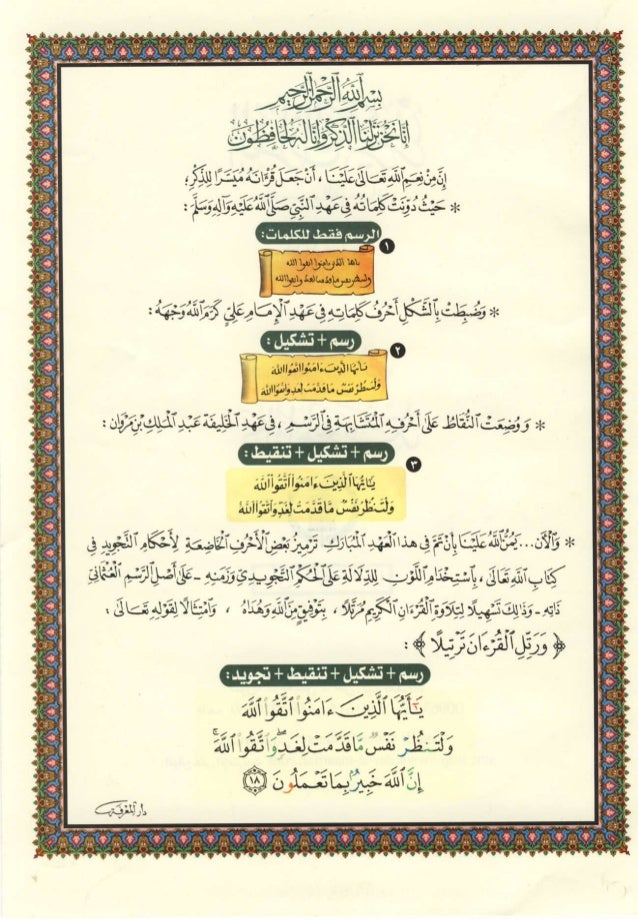 بِسْمِ ٱللَّهِ ٱلرَّحْمَٰنِ ٱلرَّحِيمِ
إِنَّا نَحْنُ نَزَّلْنَا ٱلذِّكْرَ وَإِنَّا لَهُ لَحَافِظُونَ
إِنَّ مِنْ نِعَمِ ٱللَّهِ تَعَالَى عَلَيْنَا ، أَنْ جَعَلَ قُرْآنَهُ مُيَسَّرًا لِلذِّكْرِ ؛
* حَيْثُ دُوِّنَتْ كَلِمَاتُهُ فِي عَهْدِ ٱلنَّبِيِّ صَلَّى ٱللَّهُ عَلَيْهِ وَآلِهِ وَسَلَّمَ :
الرسم فقط للكلمات:
١
ٮاٮها الدٮں ءامٮوا اٮڡوا الله
ولٮٮطر ٮڡس ما ڡدمٮ لعد واٮڡوا الله
* وَضُبِطَتْ بِٱلشَّكْلِ أَحْرُفُ كَلِمَاتِهِ فِي عَهْدِ ٱلْإِمَامِ عَلِيٍّ كَرَّمَ ٱللَّهُ وَجْهَهُ :
رسم + تشكيل :
٢
يَٰأَيُّهَا ٱلَّذِينَ ءَامَنُوا ٱتَّقُوا ٱللَّهَ
وَلْتَنظُرْ نَفْسٌ مَا قَدَّمَتْ لِغَدٍ وَٱتَّقُوا ٱللَّهَ
* وَوُضِعَتْ ٱلنُّقَاطُ عَلَى أَحْرُفِهِ ٱلْمُتَشَابِهَةِ فِي ٱلرَّسْمِ ، فِي عَهْدِ ٱلْخَلِيفَةِ عَبْدِ ٱلْمَلِكِ بْنِ مَرْوَانَ :
رسم + تشكيل + تنقيط :
٣
يَٰأَيُّهَا ٱلَّذِينَ ءَامَنُوا ٱتَّقُوا ٱللَّهَ
وَلْتَنظُرْ نَفْسٌ مَّا قَدَّمَتْ لِغَدٍ وَٱتَّقُوا ٱللَّهَ
* وَٱلْآنَ... يَمُنُّ ٱللَّهُ عَلَيْنَا بِأَنْ تَمَّ فِي هَذَا ٱلْعَهْدِ ٱلْمُبَارَكِ تَرْمِيزُ بَعْضِ ٱلْأَحْرُفِ ٱلْخَاضِعَةِ لِأَحْكَامِ ٱلتَّجْوِيدِ فِي
كِتَابِ ٱللَّهِ تَعَالَى ، بِٱسْتِخْدَامِ ٱللَّوْنِ لِلدِّلَالَةِ عَلَى ٱلْحُكْمِ ٱلتَّجْوِيدِيِّ وَزَمَنِهِ - عَلَى أَصْلِ ٱلرَّسْمِ ٱلْعُثْمَانِيِّ
ذَاتِهِ - وَذَٰلِكَ تَسْهِيلًا لِتِلَاوَةِ ٱلْقُرْءَانِ ٱلْكَرِيمِ مُرَتَّلًا ، بِتَوْفِيقٍ مِنَ ٱللَّهِ وَهُدَاهُ ، وَٱمْتِثَالًا لِقَوْلِهِ تَعَالَى :
﴿ وَرَتِّلِ ٱلْقُرْءَانَ تَرْتِيلًا ﴾ :
رسم + تشكيل + تنقيط + تجويد :
يَٰٓأَيُّهَا ٱلَّذِينَ ءَامَنُوا۟ ٱتَّقُوا۟ ٱللَّهَ
وَلْتَنظُرْ نَفْسٌ مَّا قَدَّمَتْ لِغَدٍۖ وَٱتَّقُوا۟ ٱللَّهَۚ
إِنَّ ٱللَّهَ خَبِيرٌۢ بِمَا تَعْمَلُونَ ١٨
دار المعرفة